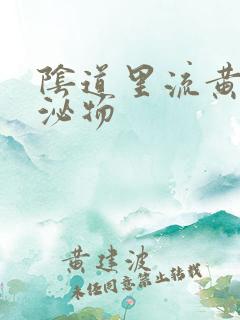 陰道里流黄
泌物
黄建波
未经同意禁止转载